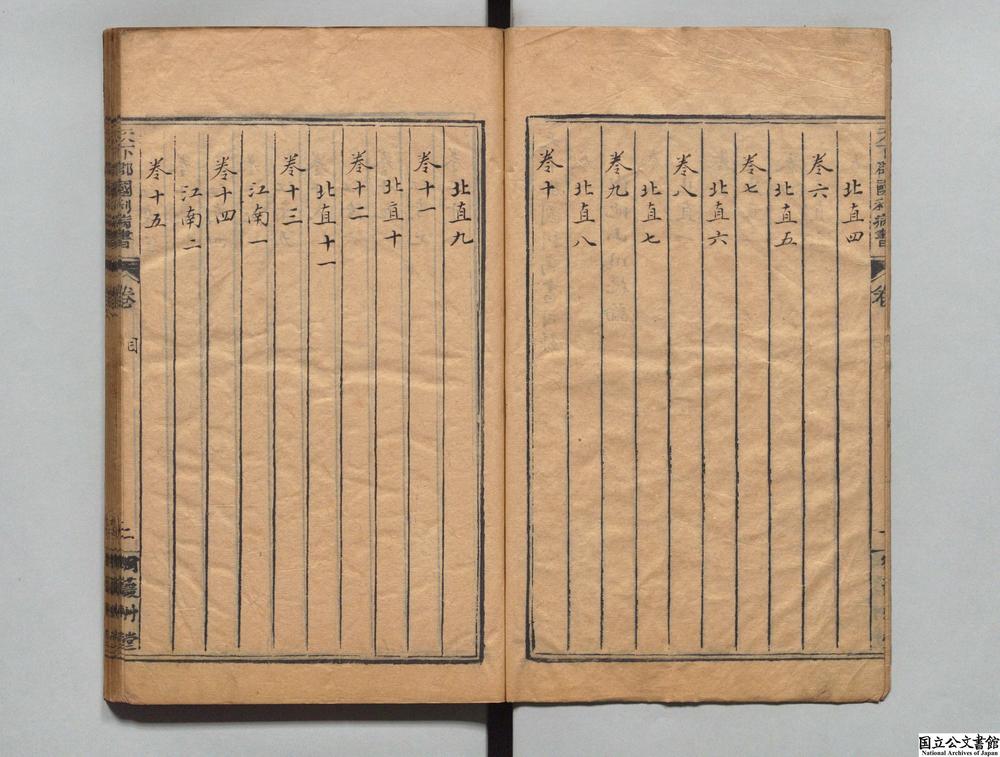 北直四
卷六
北直五
卷七
北直六
卷八
北直七
卷九
北直八
卷十
北直九
卷十一
北直十
卷十二
北直十一
卷十三
江南一
卷十四
江南二
卷十五
天下郡國利病書
卷
目
二
天下郡國利病書
卷
国立公文書館
National Archives of Japan